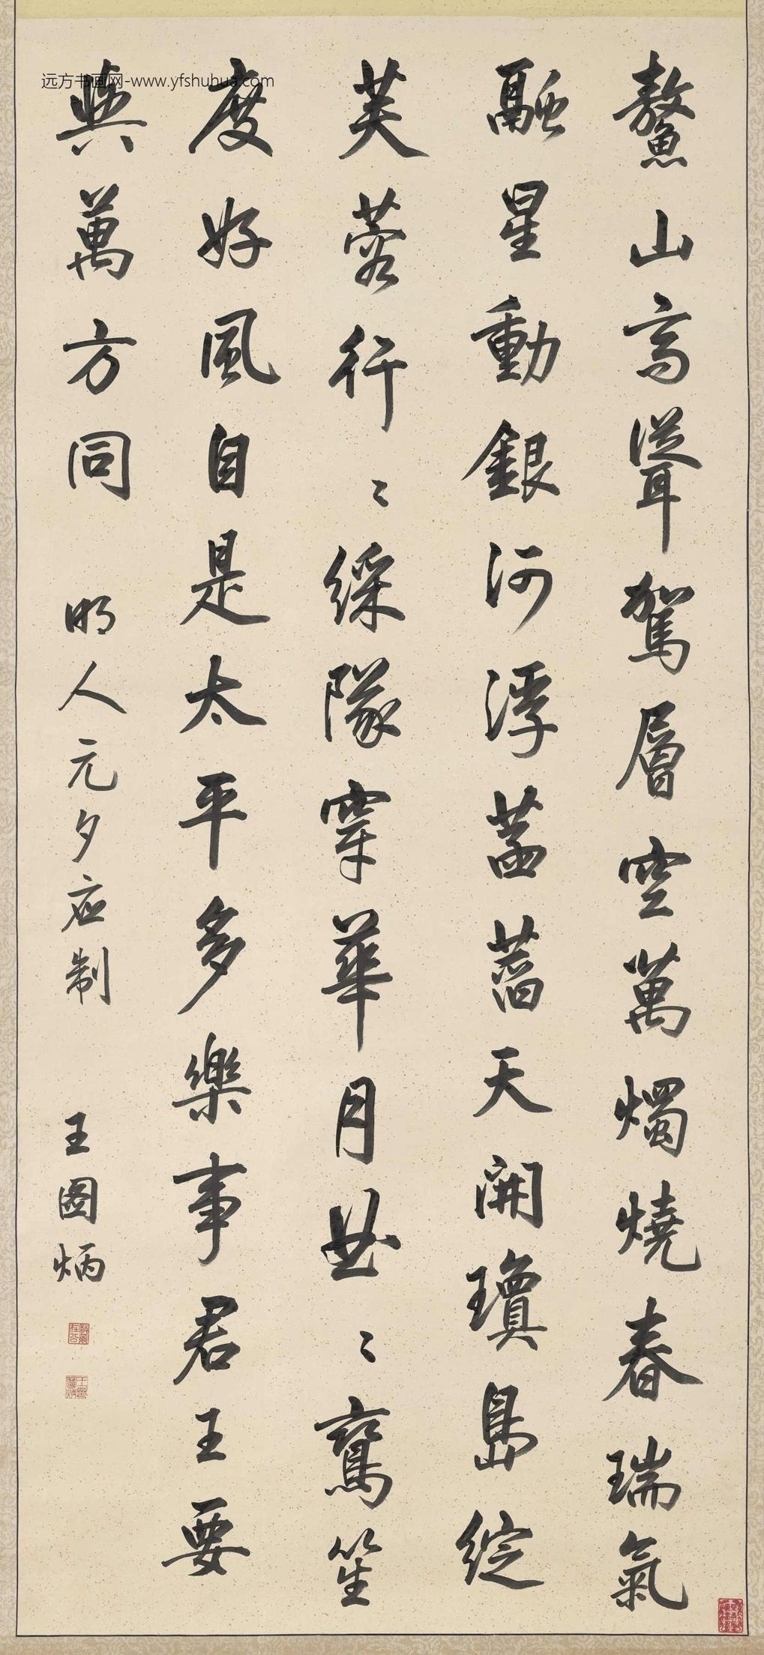 远方书画网-www.yfshuhua.com
鰲山高聳駕層空萬燭燒春瑞氣
融星動銀河浮菡萏天開瓊島綻
芙蓉行〻綵隊穿華月曲〻鸞笙
度好風自是太平多樂事君王要
與萬方同 明人元夕應制 王圖炳